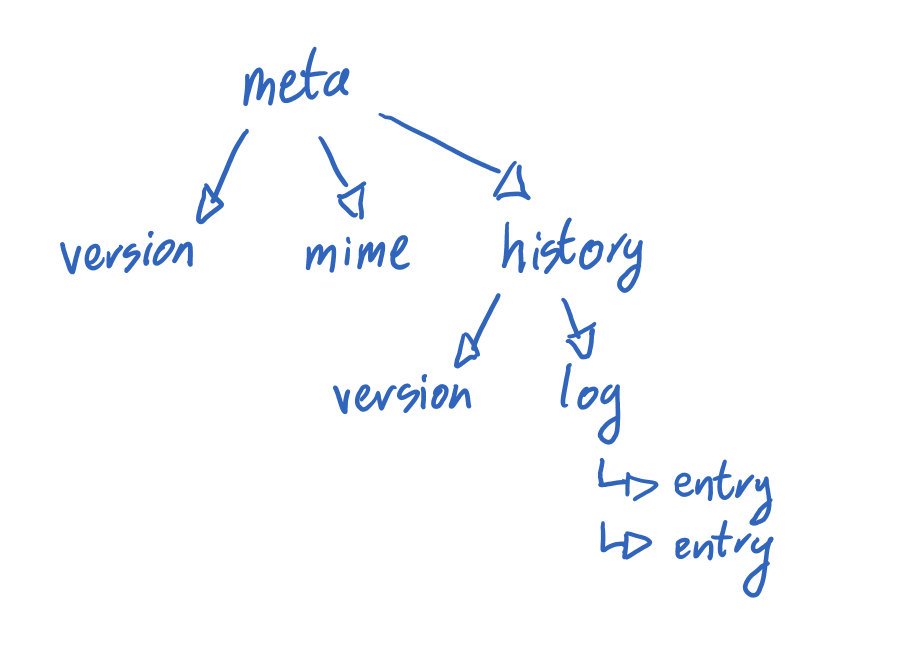 meta
version mime history
version log
entry
entry